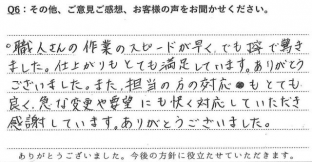 Q6：その他、ご意見ご感想、お客様の声をお聞かせください。
。職人さんの作業のスピードが早く、でも丁寧で驚き
ました。仕上がりもとても満足しています。ありがとう
ございました。また、担当の方の対応もとても
良く、急な変更や要望にも快く対応していただき
感謝しています。ありがとうございました。
ありがとうございました。今後の方針に役立たせていただきます。